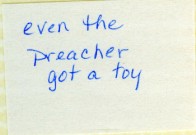 even the
preacher
got a toy